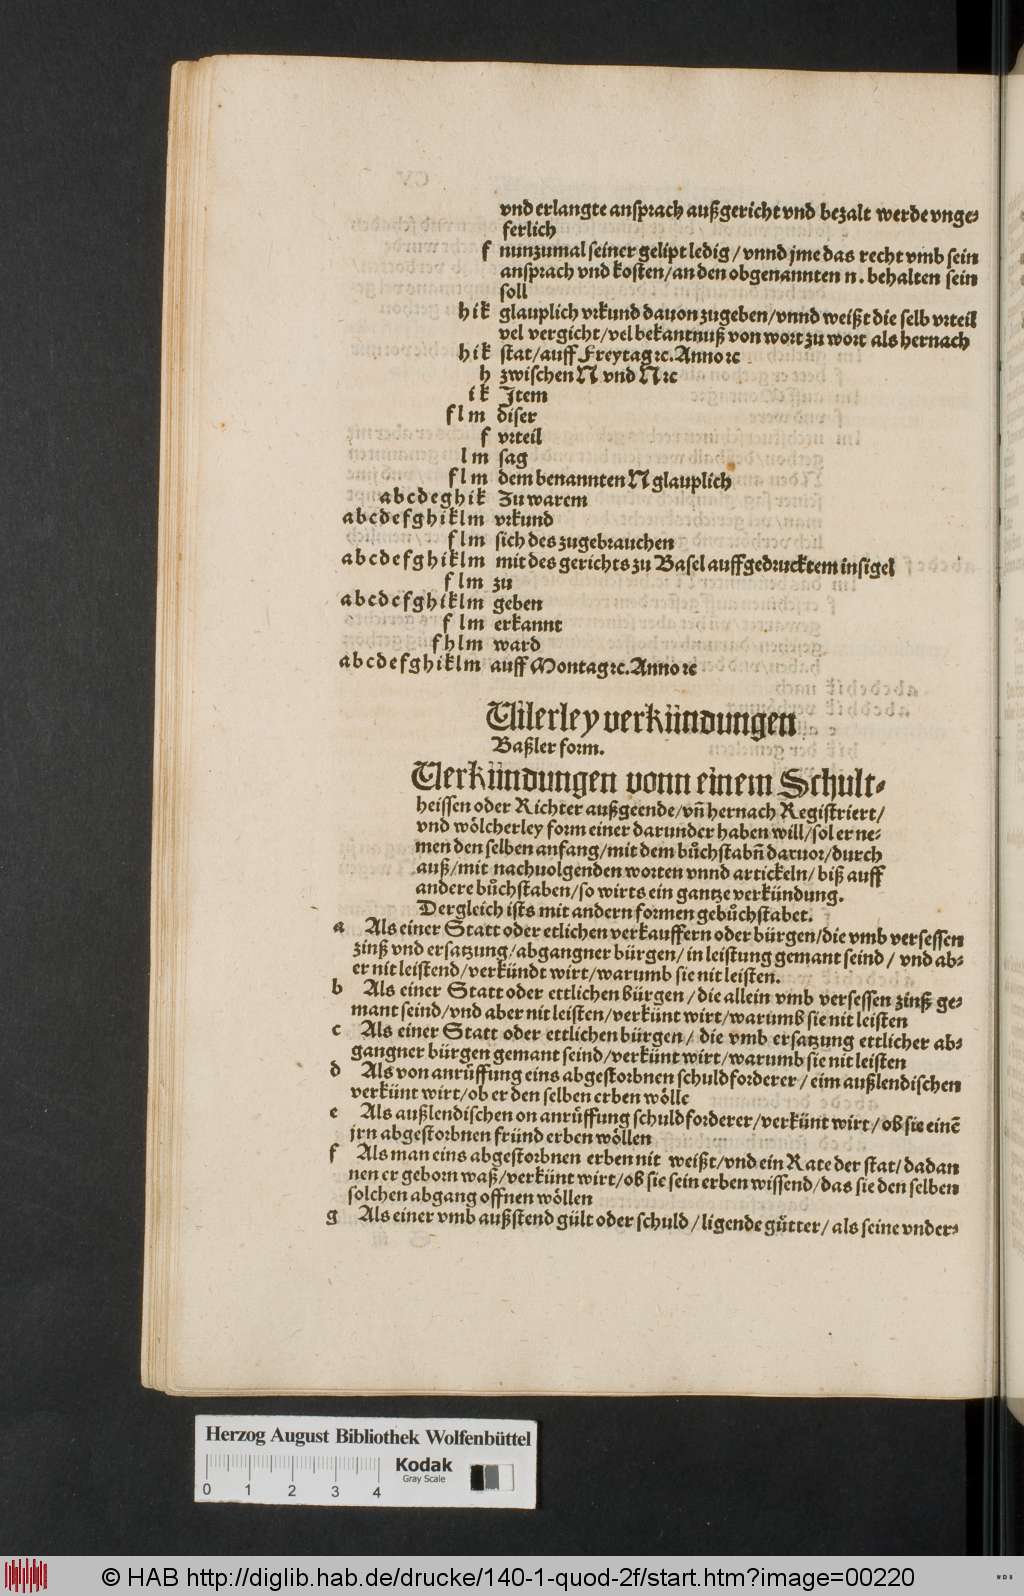 vnd erlangte ansprach außgericht vnd bezalt werde vnge-
ferlich
f nunzumal seiner gelipt ledig / vnnd jme das recht vmb sein
ansprach vnd kosten / an den obgenannten n. behalten sein
soll
h i k glauplich vrkund dauon zugeben / vnnd weißt die selb vrteil
vel vergicht / vel bekantnuß von wort zu wort als hernach
h i k stat / auff Freytag ꝛc. Anno ꝛc
h zwischen N vnd N ꝛc
i k Jtem
f l m diser
f vrteil
l m sag
f l m dem benannten N glauplich
a b c d e g h i k Zu warem
a b c d e f g h i k l m vrkund
f l m sich des zugebrauchen
a b c d e f g h i k l m mit des gerichts zu Basel auffgedrucktem insigel
f l m zu
a b c d e f g h i k l m geben
f l m erkannt
f h l m ward
a b c d e f g h i k l m auff Montag ꝛc. Anno ꝛc
Allerley verkündungen
Baßler form.
Verkündungen vonn einem Schult-
heissen oder Richter außgeende / vn̄ hernach Registriert /
vnd wölcherley form einer darunder haben will / sol er ne-
men den selben anfang / mit dem bůchstabn̄ daruor / durch
auß / mit nachuolgenden worten vnnd artickeln / biß auff
andere bůchstaben / so wirts ein gantze verkündung.
Dergleich ists mit andern formen gebůchstabet.
a Als einer Statt oder etlichen verkauffern oder bürgen / die vmb versessen
zinß vnd ersatzung / abgangner bürgen / in leistung gemant seind / vnd ab-
er nit leistend / verkündt wirt / warumb sie nit leisten.
b Als einer Statt oder ettlichen bürgen / die allein vmb versessen zinß ge-
mant seind / vnd aber nit leisten / verkünt wirt / warumb sie nit leisten
c Als einer Statt oder ettlichen bürgen / die vmb ersatzung ettlicher ab-
gangner bürgen gemant seind / verkünt wirt / warumb sie nit leisten
d Als von anrüffung eins abgestorbnen schuldforderer / eim außlendischen
verkünt wirt / ob er den selben erben wölle
e Als außlendischen on anrüffung schuldforderer / verkünt wirt / ob sie einē
jrn abgestorbnen fründ erben wöllen
f Als man eins abgestorbnen erben nit weißt / vnd ein Rate der stat / dadan
nen er geborn waß / verkünt wirt / ob sie sein erben wissend / das sie den selben
solchen abgang offnen wöllen
g Als einer vmb außstend gült oder schuld / ligende gütter / als seine vnder-
Herzog August Bibliothek Wolfenbüttel
Kodak
Gray Scale
0 1 2 3 4
© HAB http://diglib.hab.de/drucke/140-1-quod-2f/start.htm?image=00220